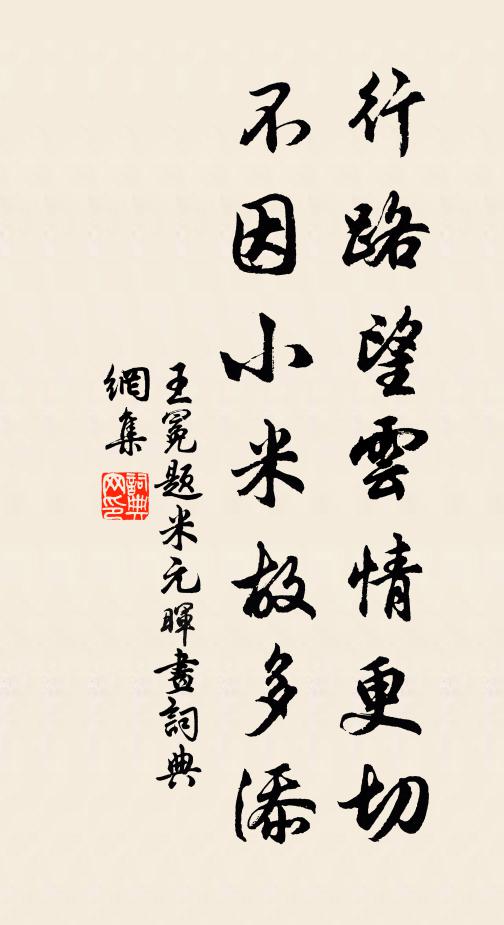 行路望雲情更切
不因小米故多添
王冕题米元暉畫詞典
網集
詞典网印